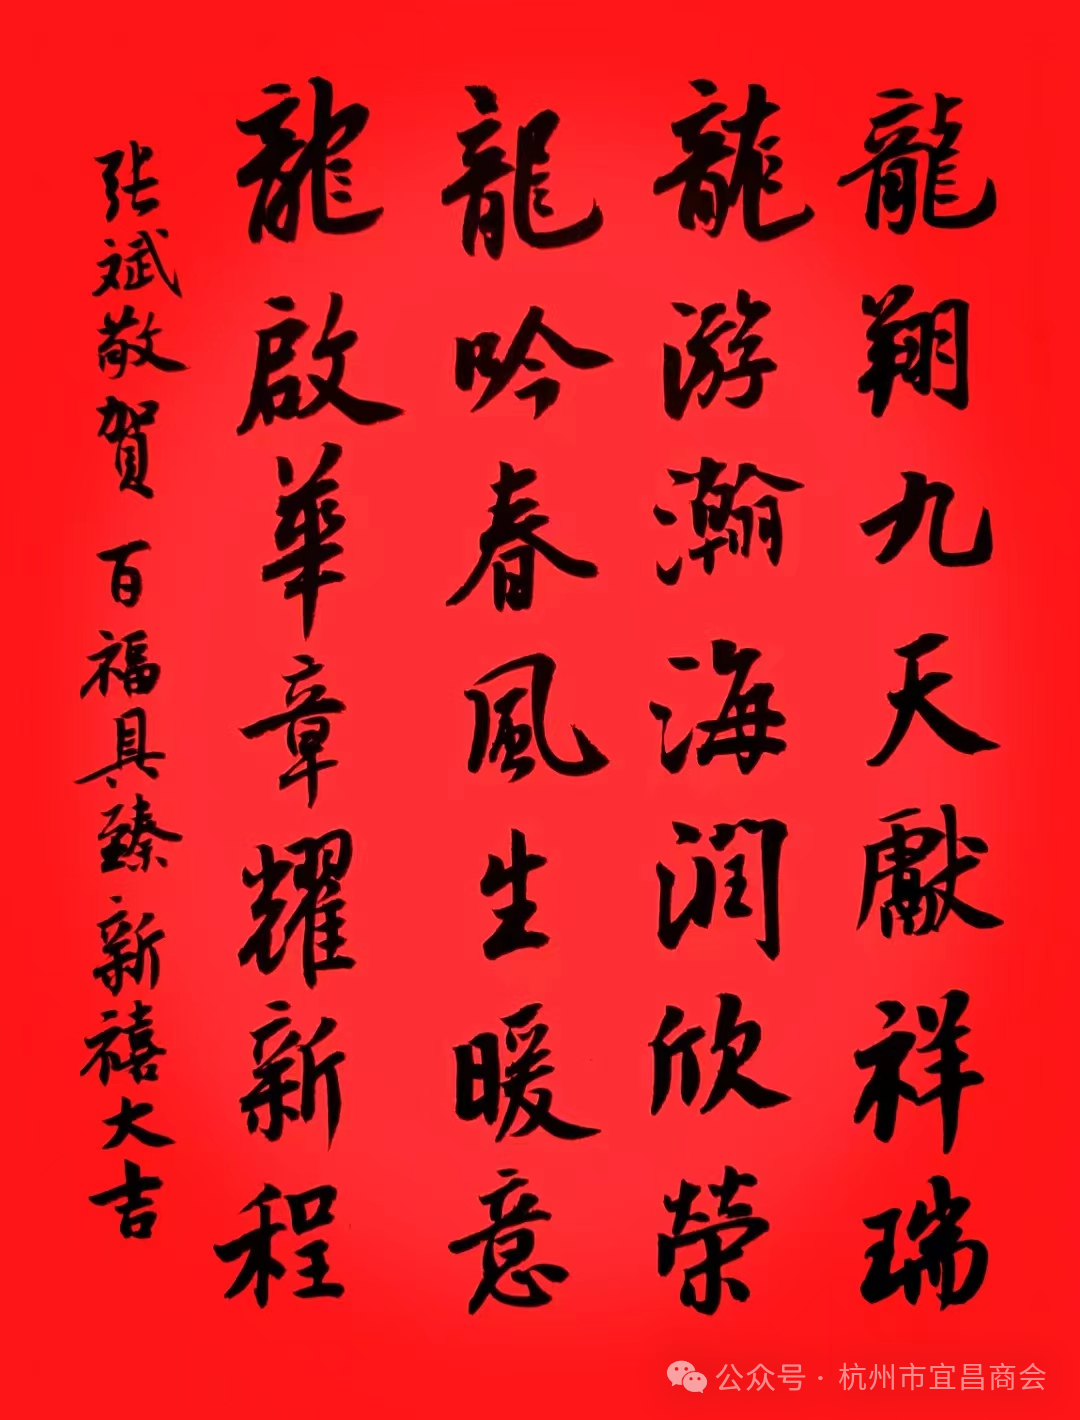 龍翔九天獻祥瑞
龍游瀚海润欣榮
龍吟春風生暖意
龍啟華章耀新程
张斌敬賀 百福具臻新禧大吉
公众号 · 杭州市宜昌商会